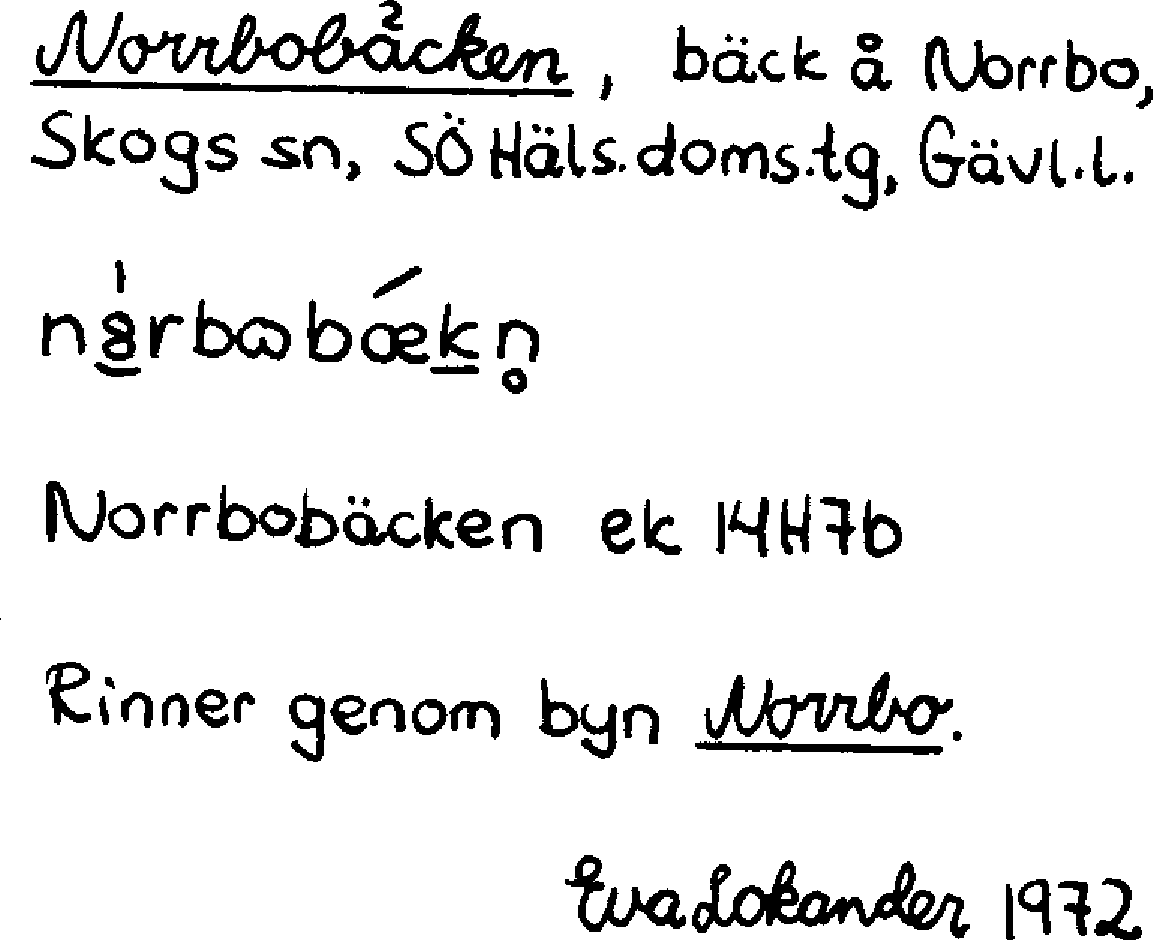 Norrbobäcken, bäck å Norrbo,
Skogs sn, SÖ Häls.doms.tg, Gävl.l.
Norrbobäcken ek 14H7b
Rinner genom byn Norrbo.
Eva Lokander 1972